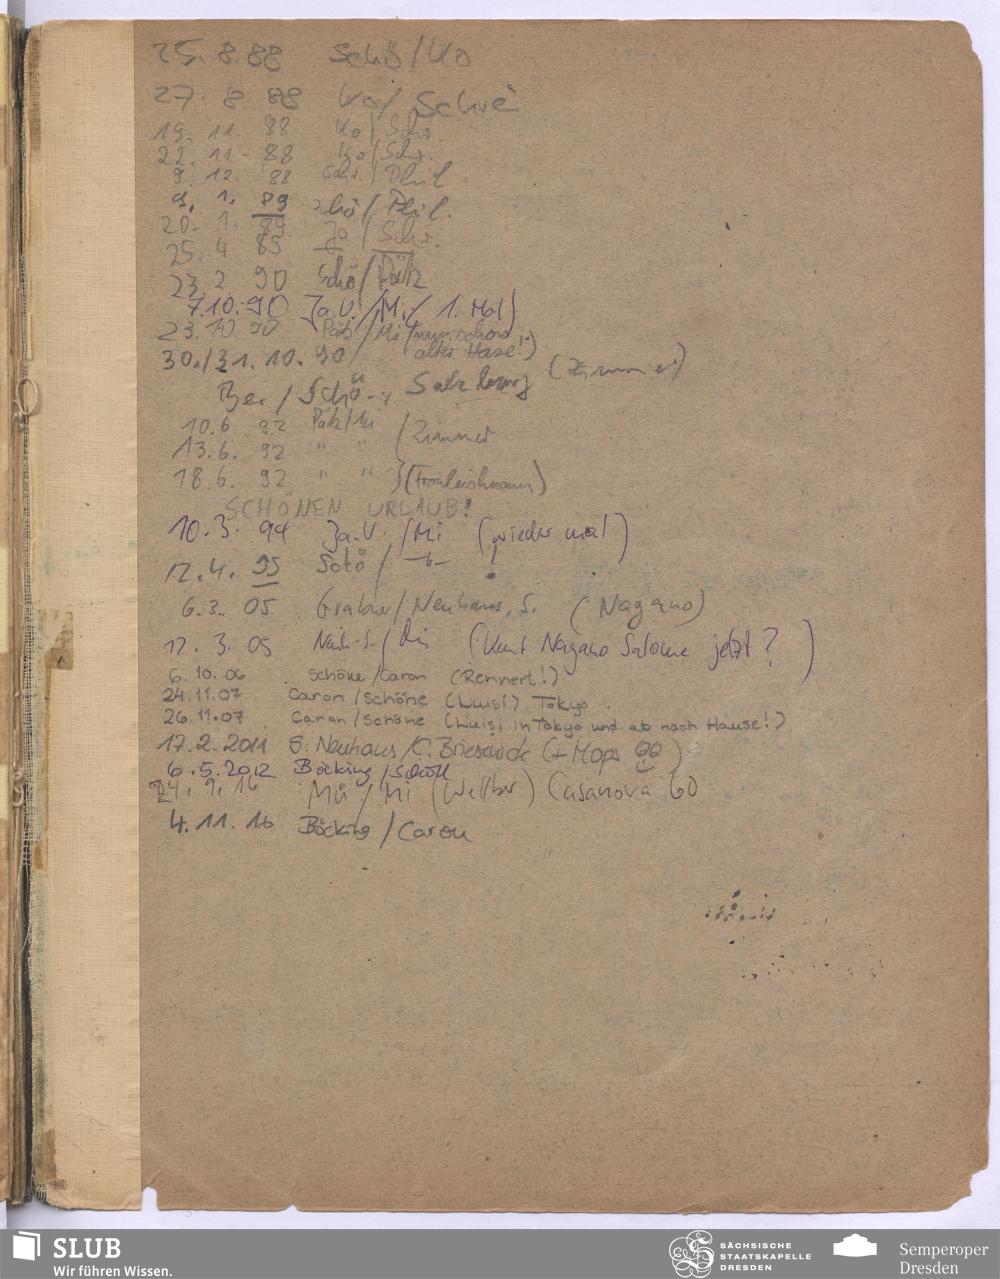 25. 8. 88 Schö/Ko
27. 8 88 Ko/
19. 11. 88 Ko/Schi
22. 11. 88 Ko/Schi.
9. 12. 88 Schi./Phil
9. 1. 89 Schö/Phil.
20. 1. 89 Ja/Schi.
25. 4 89
23. 2 90 Schö/Pätz
7.10. 90 Ja. V. /Mi/ 1. Mal)
23. 10. 90 Pätz/Mi (nun schon
alter Hase!)
30./31. 10. 90
Ber/Schö Salzburg (Zimmer)
10.6 92 Pätz/Mi
13. 6. 92 " " (Zimmer
18. 6. 92 " " (Fronleichnam)
SCHÖNEN URLAUB!
10. 3. 94 Ja. V. /Mi (wieder mal)
12. 4. 95 / !
6. 3. 05 /Neuhaus, S. (Nagano)
12. 3. 05 Neuh-S./ (Kent Nagano Salome jetzt?)
6. 10. 06 Schöne/Caron (Rennert!)
24.11.07 Caron/Schöne (Luisi) Tokyo
26.11.07 Caron/Schöne (Luisi in Tokyo und ab nach Hause!)
17. 2. 2011 S. Neuhaus/C. Briesenick (+ Mops)
6. 5. 2012 Böcking/Scholl
24. 9. 16 Mü/Mi (Welber) Casanova 60
4. 11. 16 Böcking/Caron
SLUB
Wir führen Wissen.
SÄCHSISCHE
STAATSKAPELLE
DRESDEN
Semperoper
Dresden